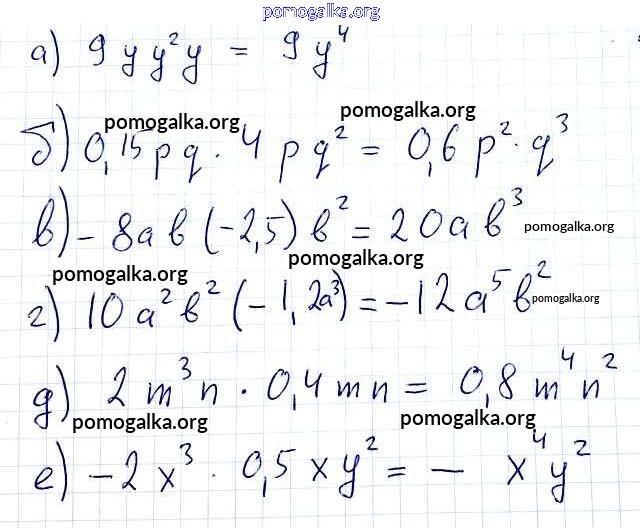 pomogalka.org
а) 9 y y² y = 9 y⁴
pomogalka.org pomogalka.org
б) 0,15 p q · 4 p q² = 0,6 p² · q³
в) - 8 a b (-2,5) b² = 20 a b³ pomogalka.org
pomogalka.org pomogalka.org
г) 10 a² b² (-1,2a³) = -12 a⁵ b² pomogalka.org
д) 2 m³ n · 0,4 m n = 0,8 m⁴ n²
pomogalka.org pomogalka.org
е) -2 x³ · 0,5 x y² = - x⁴ y²